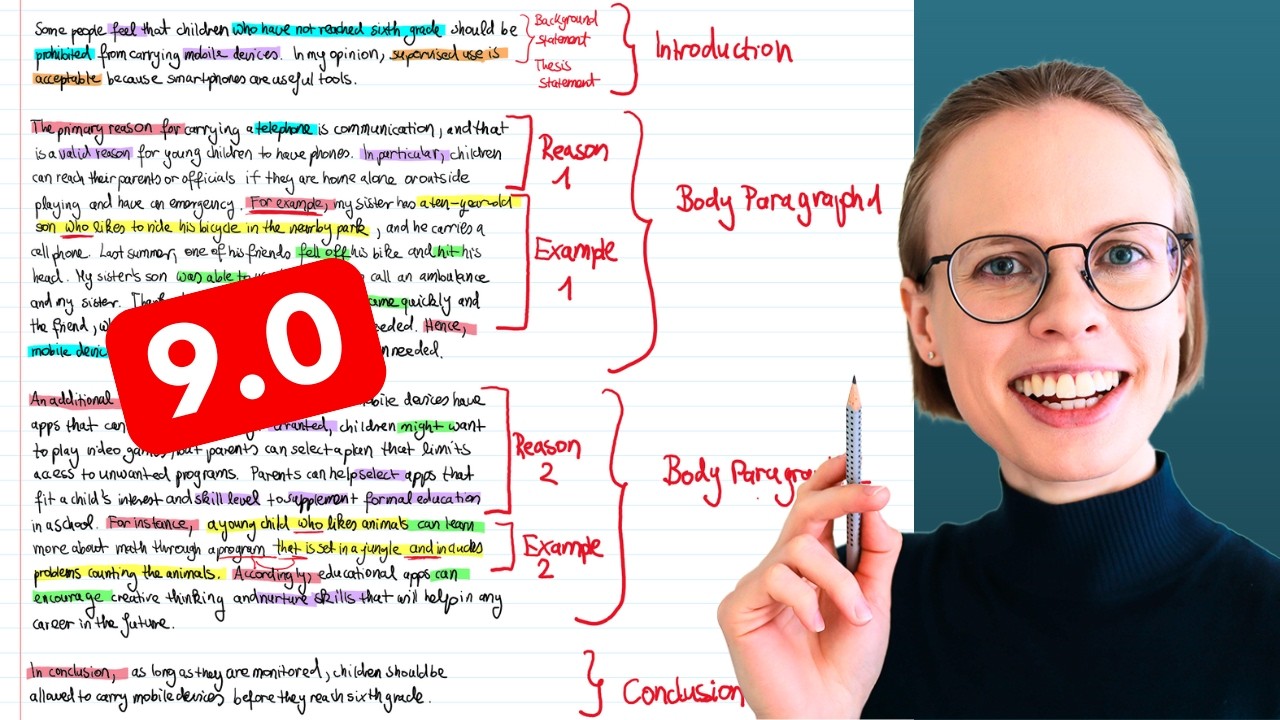 Some people feel that children who have not reached sixth grade should be
prohibited from carrying mobile devices. In my opinion, supervised use is
acceptable because smartphones are useful tools.
Background
statement
Thesis
statement
Introduction
The primary reason for carrying a telephone is communication, and that
is a valid reason for young children to have phones. In particular, children
can reach their parents or officials if they are home alone or outside
playing and have an emergency. For example, my sister has a ten-year-old
son who likes to ride his bicycle in the nearby park, and he carries a
cell phone. Last summer, one of his friends fell off his bike and hit his
head. My sister's son was able to call an ambulance
and my sister. quickly and
the friend, Hence,
mobile needed.
Reason
1
Example
1
Body Paragraph 1
An additional mobile devices have
apps that can children might want
to play video but parents can select a plan that limits
access to unwanted programs. Parents can help select apps that
fit a child's interest and skill level to supplement formal education
in a school. For instance, a young child who likes animals can learn
more about math through a program that is set in a jungle and includes
problems counting the animals. Accordingly, educational apps can
encourage creative thinking and nurture skills that will help in any
career in the future.
Reason
2
Example
2
Body
In conclusion, as long as they are monitored, children should be
allowed to carry mobile devices before they reach sixth grade.
Conclusion
9.0